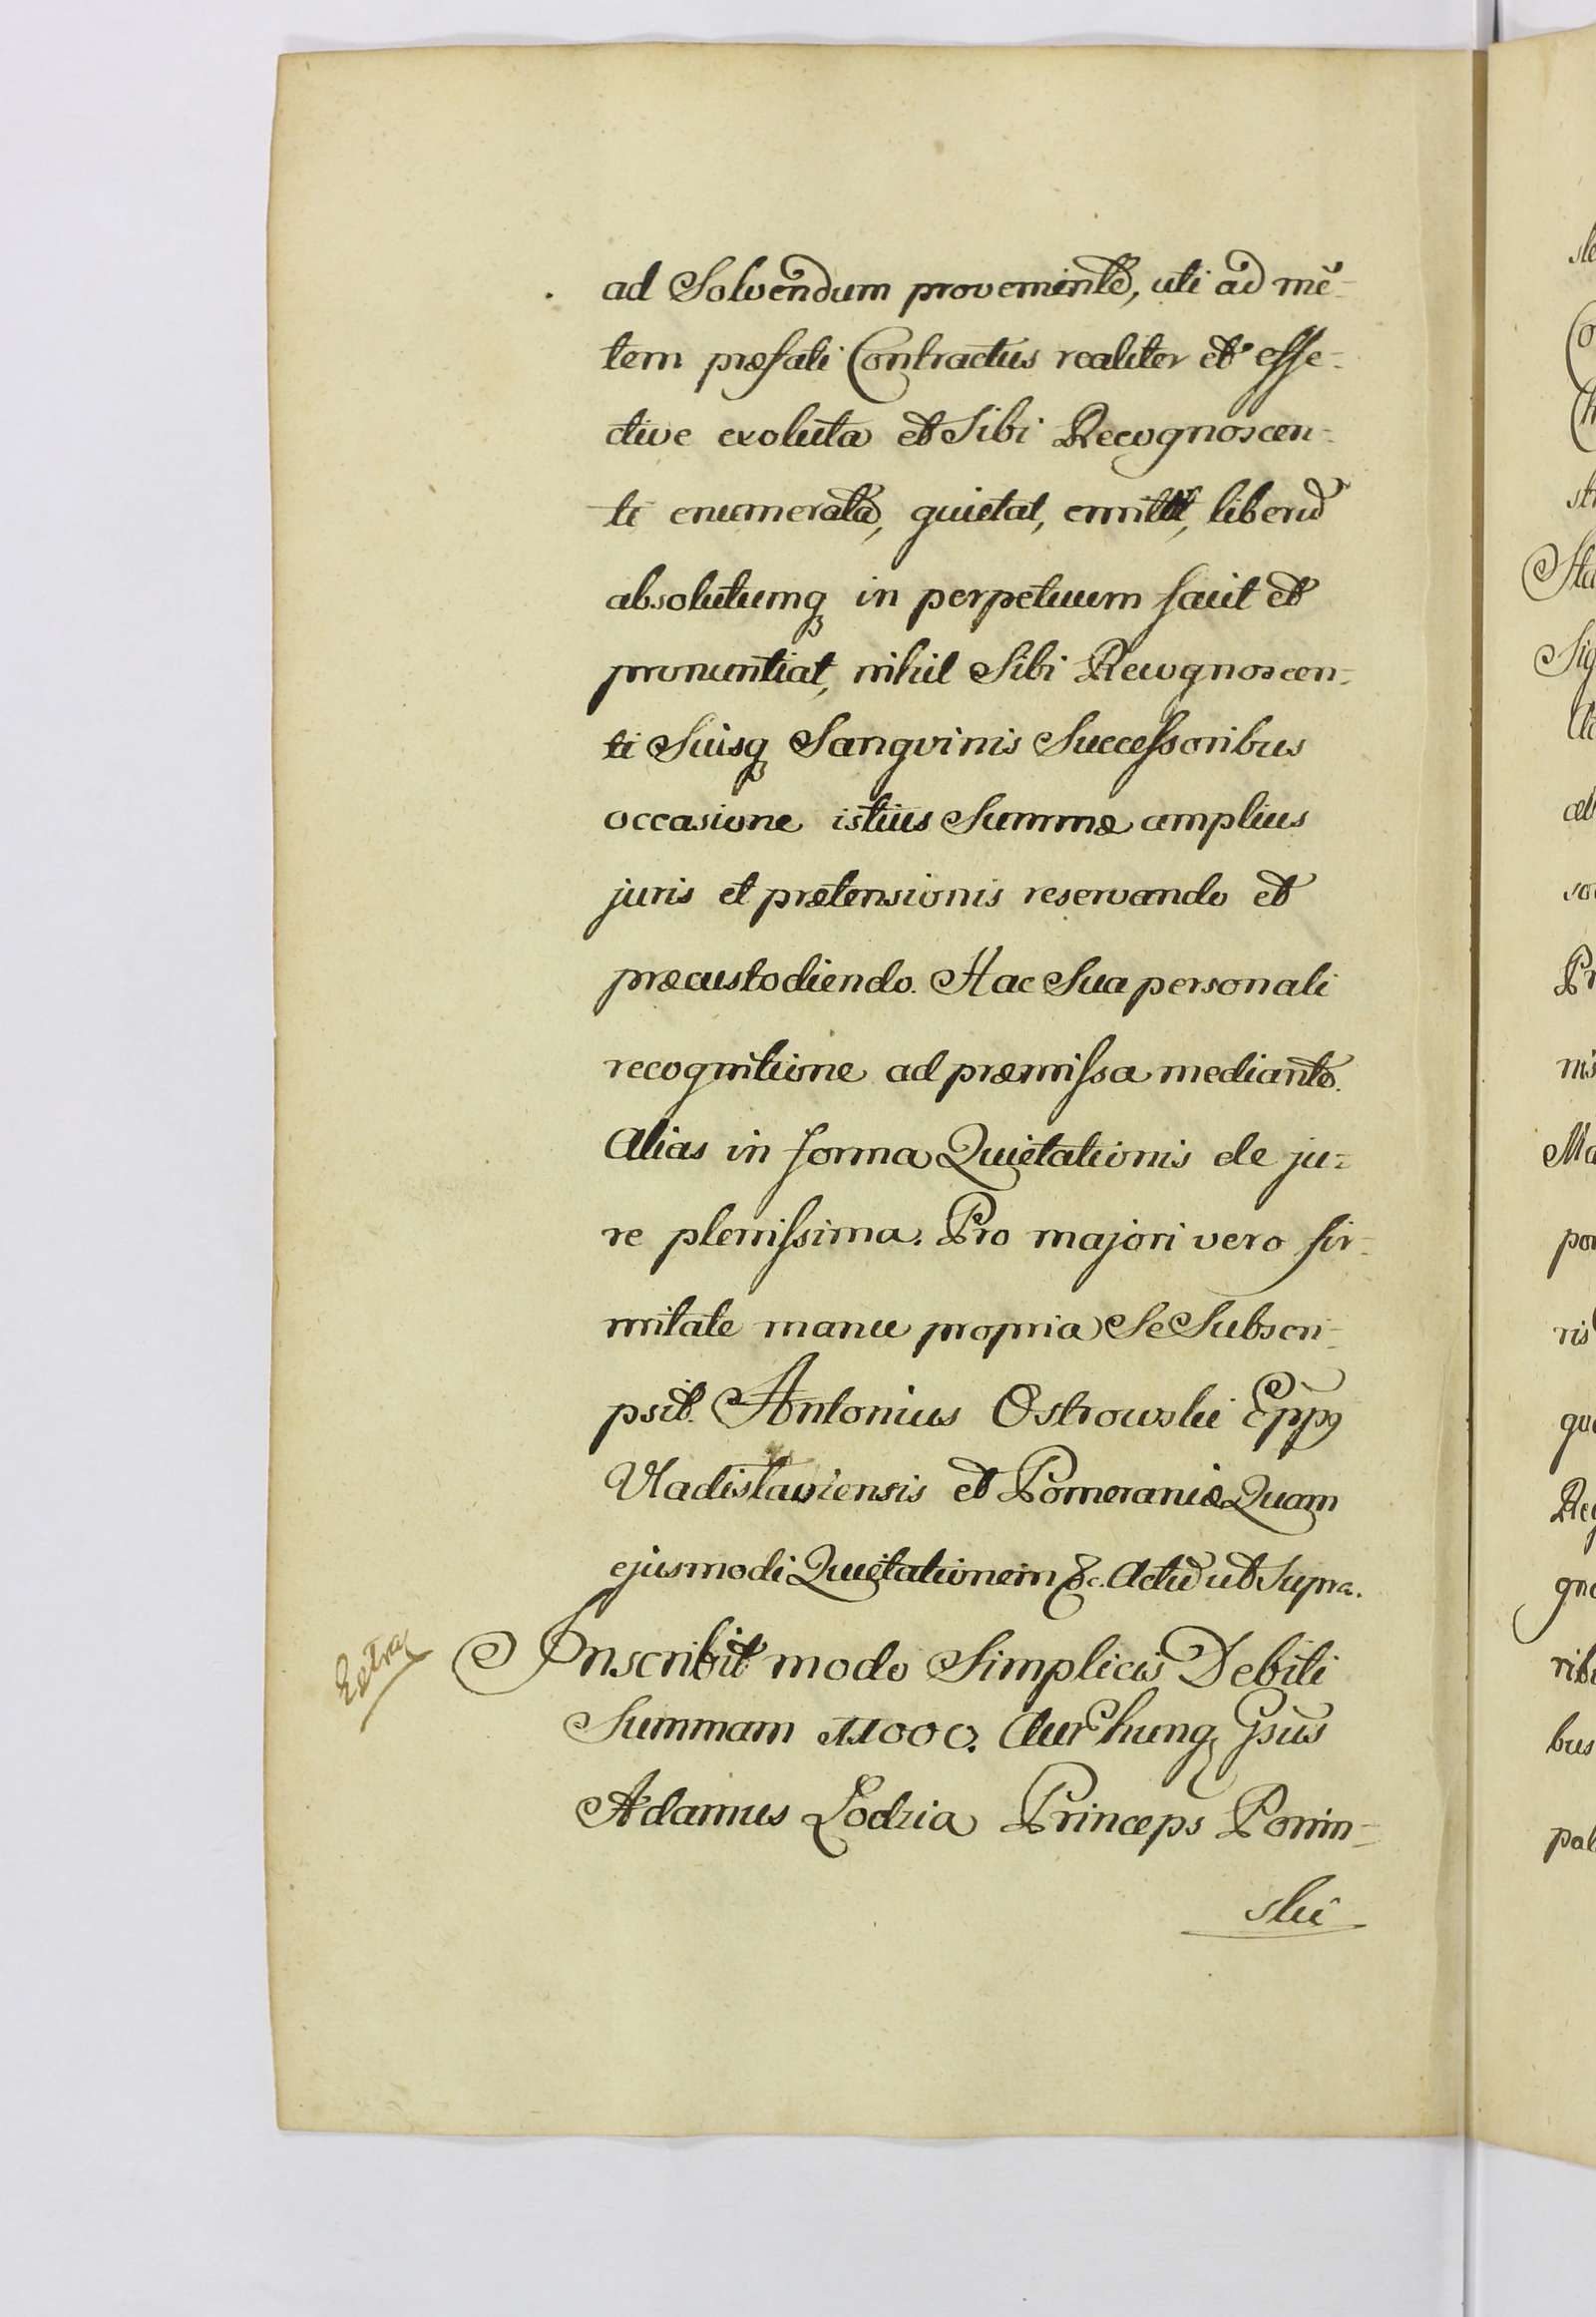 ad Solvendum proveniente, uti ad mē-
tem præfati Contractus realiter et effe-
ctive exoluta et Sibi Recognoscen-
ti enumerata, quietat, emittit, liberū
absolutumq in perpetuum facit et
pronuntiat, nihil Sibi Recognoscen-
ti Suisq Sangvinis Successoribus
occasione istius Summæ amplius
juris et prætensionis reservando et
præcustodiendo. Hac Sua personali
recognitione ad præmissa mediante.
Alias in forma Quietationis de ju-
re plenissima. Pro majori vero fir-
mitate manu propria Se Subscri-
psit. Antonius Ostrowski Eppus
Vladislaviensis et Pomeraniæ Quam
ejusmodi Quietationem &c. Actū ut Supra.
Extra
Inscribit modo Simplicis Debiti
Summam 11000. Aur hung, Gsus
Adamus Łodzia Princeps Ponin-
ski